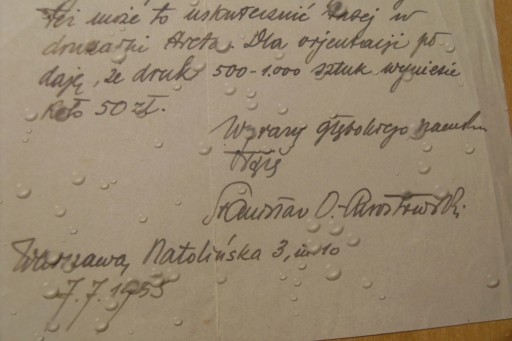 też może to uskutecznić taniej w
drukarni Arcta. Dla orjentacji po
daję, że druk 500-1.000 sztuk wyniesie
koło 50 zł.
Wyrazy głębokiego szacunku
Stanisław O.-
Warszawa, Natolińska 3, m 10
7.7.1935